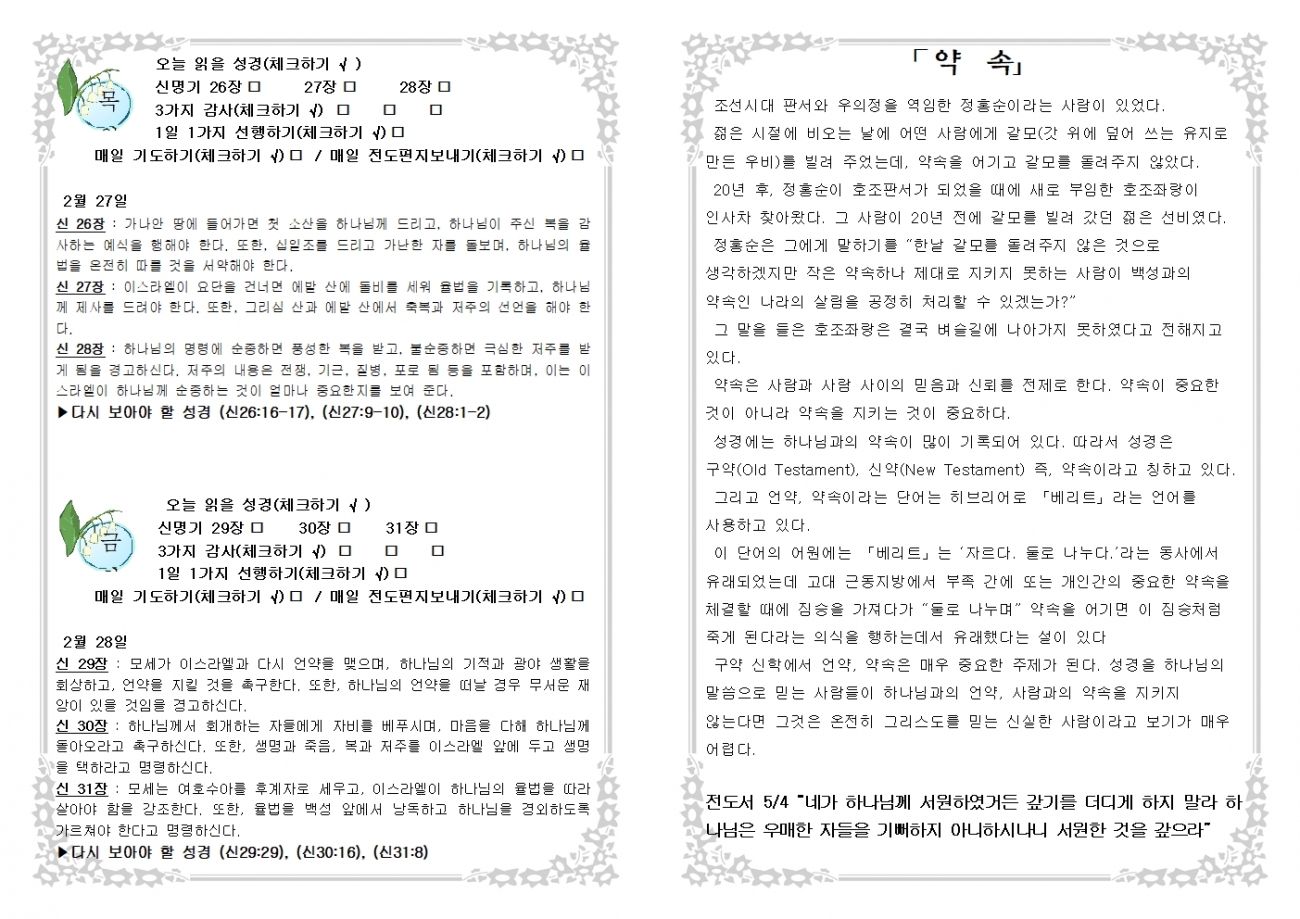 오늘 읽을 성경(체크하기 √ )
목
신명기 26장 □ 27장 □ 28장 □
3가지 감사(체크하기 √) □ □ □
1일 1가지 선행하기(체크하기 √) □
매일 기도하기(체크하기 √) □ / 매일 전도편지보내기(체크하기 √) □
2월 27일
신 26장 : 가나안 땅에 들어가면 첫 소산을 하나님께 드리고, 하나님이 주신 복을 감
사하는 예식을 행해야 한다. 또한, 십일조를 드리고 가난한 자를 돌보며, 하나님의 율
법을 온전히 따를 것을 서약해야 한다.
신 27장 : 이스라엘이 요단을 건너면 에발 산에 돌비를 세워 율법을 기록하고, 하나님
께 제사를 드려야 한다. 또한, 그리심 산과 에발 산에서 축복과 저주의 선언을 해야 한
다.
신 28장 : 하나님의 명령에 순종하면 풍성한 복을 받고, 불순종하면 극심한 저주를 받
게 됨을 경고하신다. 저주의 내용은 전쟁, 기근, 질병, 포로 됨 등을 포함하며, 이는 이
스라엘이 하나님께 순종하는 것이 얼마나 중요한지를 보여 준다.
▶다시 보아야 할 성경 (신26:16-17), (신27:9-10), (신28:1-2)
오늘 읽을 성경(체크하기 √ )
금
신명기 29장 □ 30장 □ 31장 □
3가지 감사(체크하기 √) □ □ □
1일 1가지 선행하기(체크하기 √) □
매일 기도하기(체크하기 √) □ / 매일 전도편지보내기(체크하기 √) □
2월 28일
신 29장 : 모세가 이스라엘과 다시 언약을 맺으며, 하나님의 기적과 광야 생활을
회상하고, 언약을 지킬 것을 촉구한다. 또한, 하나님의 언약을 떠날 경우 무서운 재
앙이 있을 것임을 경고하신다.
신 30장 : 하나님께서 회개하는 자들에게 자비를 베푸시며, 마음을 다해 하나님께
돌아오라고 촉구하신다. 또한, 생명과 죽음, 복과 저주를 이스라엘 앞에 두고 생명
을 택하라고 명령하신다.
신 31장 : 모세는 여호수아를 후계자로 세우고, 이스라엘이 하나님의 율법을 따라
살아야 함을 강조한다. 또한, 율법을 백성 앞에서 낭독하고 하나님을 경외하도록
가르쳐야 한다고 명령하신다.
▶다시 보아야 할 성경 (신29:29), (신30:16), (신31:8)
「약 속」
조선시대 판서와 우의정을 역임한 정홍순이라는 사람이 있었다.
젊은 시절에 비오는 날에 어떤 사람에게 갈모(갓 위에 덮어 쓰는 유지로
만든 우비)를 빌려 주었는데, 약속을 어기고 갈모를 돌려주지 않았다.
20년 후, 정홍순이 호조판서가 되었을 때에 새로 부임한 호조좌랑이
인사차 찾아왔다. 그 사람이 20년 전에 갈모를 빌려 갔던 젊은 선비였다.
정홍순은 그에게 말하기를 “한날 갈모를 돌려주지 않은 것으로
생각하겠지만 작은 약속하나 제대로 지키지 못하는 사람이 백성과의
약속인 나라의 살림을 공정히 처리할 수 있겠는가?”
그 말을 들은 호조좌랑은 결국 벼슬길에 나아가지 못하였다고 전해지고
있다.
약속은 사람과 사람 사이의 믿음과 신뢰를 전제로 한다. 약속이 중요한
것이 아니라 약속을 지키는 것이 중요하다.
성경에는 하나님과의 약속이 많이 기록되어 있다. 따라서 성경은
구약(Old Testament), 신약(New Testament) 즉, 약속이라고 칭하고 있다.
그리고 언약, 약속이라는 단어는 히브리어로 「베리트」라는 언어를
사용하고 있다.
이 단어의 어원에는 「베리트」는 ‘자르다. 둘로 나누다.’라는 동사에서
유래되었는데 고대 근동지방에서 부족 간에 또는 개인간의 중요한 약속을
체결할 때에 짐승을 가져다가 “둘로 나누며” 약속을 어기면 이 짐승처럼
죽게 된다라는 의식을 행하는데서 유래했다는 설이 있다
구약 신학에서 언약, 약속은 매우 중요한 주제가 된다. 성경을 하나님의
말씀으로 믿는 사람들이 하나님과의 언약, 사람과의 약속을 지키지
않는다면 그것은 온전히 그리스도를 믿는 신실한 사람이라고 보기가 매우
어렵다.
전도서 5/4 “네가 하나님께 서원하였거든 갚기를 더디게 하지 말라 하
나님은 우매한 자들을 기뻐하지 아니하시나니 서원한 것을 갚으라”